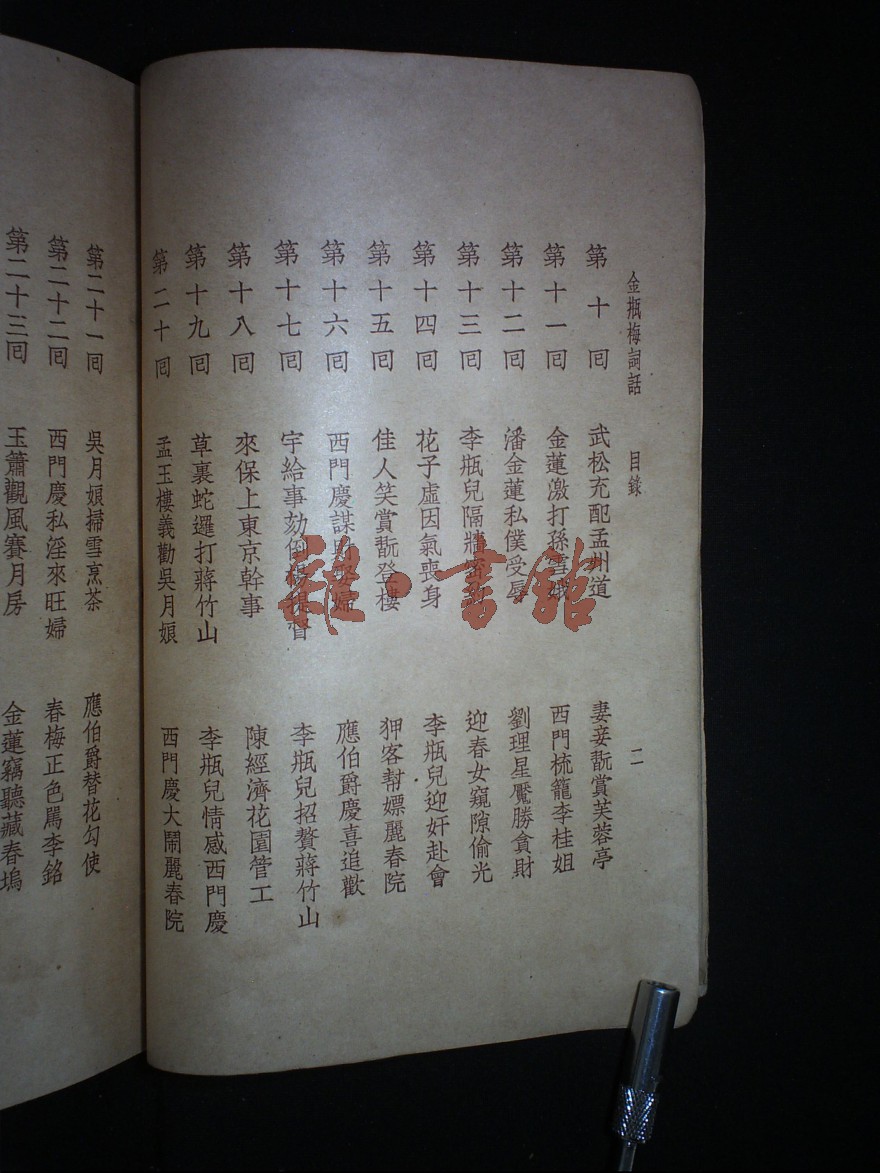 金瓶梅詞話 目錄 二
第十回 武松充配孟州道 妻妾翫賞芙蓉亭
第十一回 金蓮激打孫雪娥 西門梳籠李桂姐
第十二回 潘金蓮私僕受辱 劉理星魘勝貪財
第十三回 李瓶兒隔牆密約 迎春女窺隙偷光
第十四回 花子虛因氣喪身 李瓶兒迎奸赴會
第十五回 佳人笑賞翫登樓 狎客幫嫖麗春院
第十六回 西門慶謀財娶婦 應伯爵慶喜追歡
第十七回 宇給事劾倒楊提督 李瓶兒招贅蔣竹山
第十八回 來保上東京幹事 陳經濟花園管工
第十九回 草裏蛇邏打蔣竹山 李瓶兒情感西門慶
第二十回 孟玉樓義勸吳月娘 西門慶大鬧麗春院
第二十一回 吳月娘掃雪烹茶 應伯爵替花勾使
第二十二回 西門慶私淫來旺婦 春梅正色罵李銘
第二十三回 玉簫觀風賽月房 金蓮竊聽藏春塢
書館